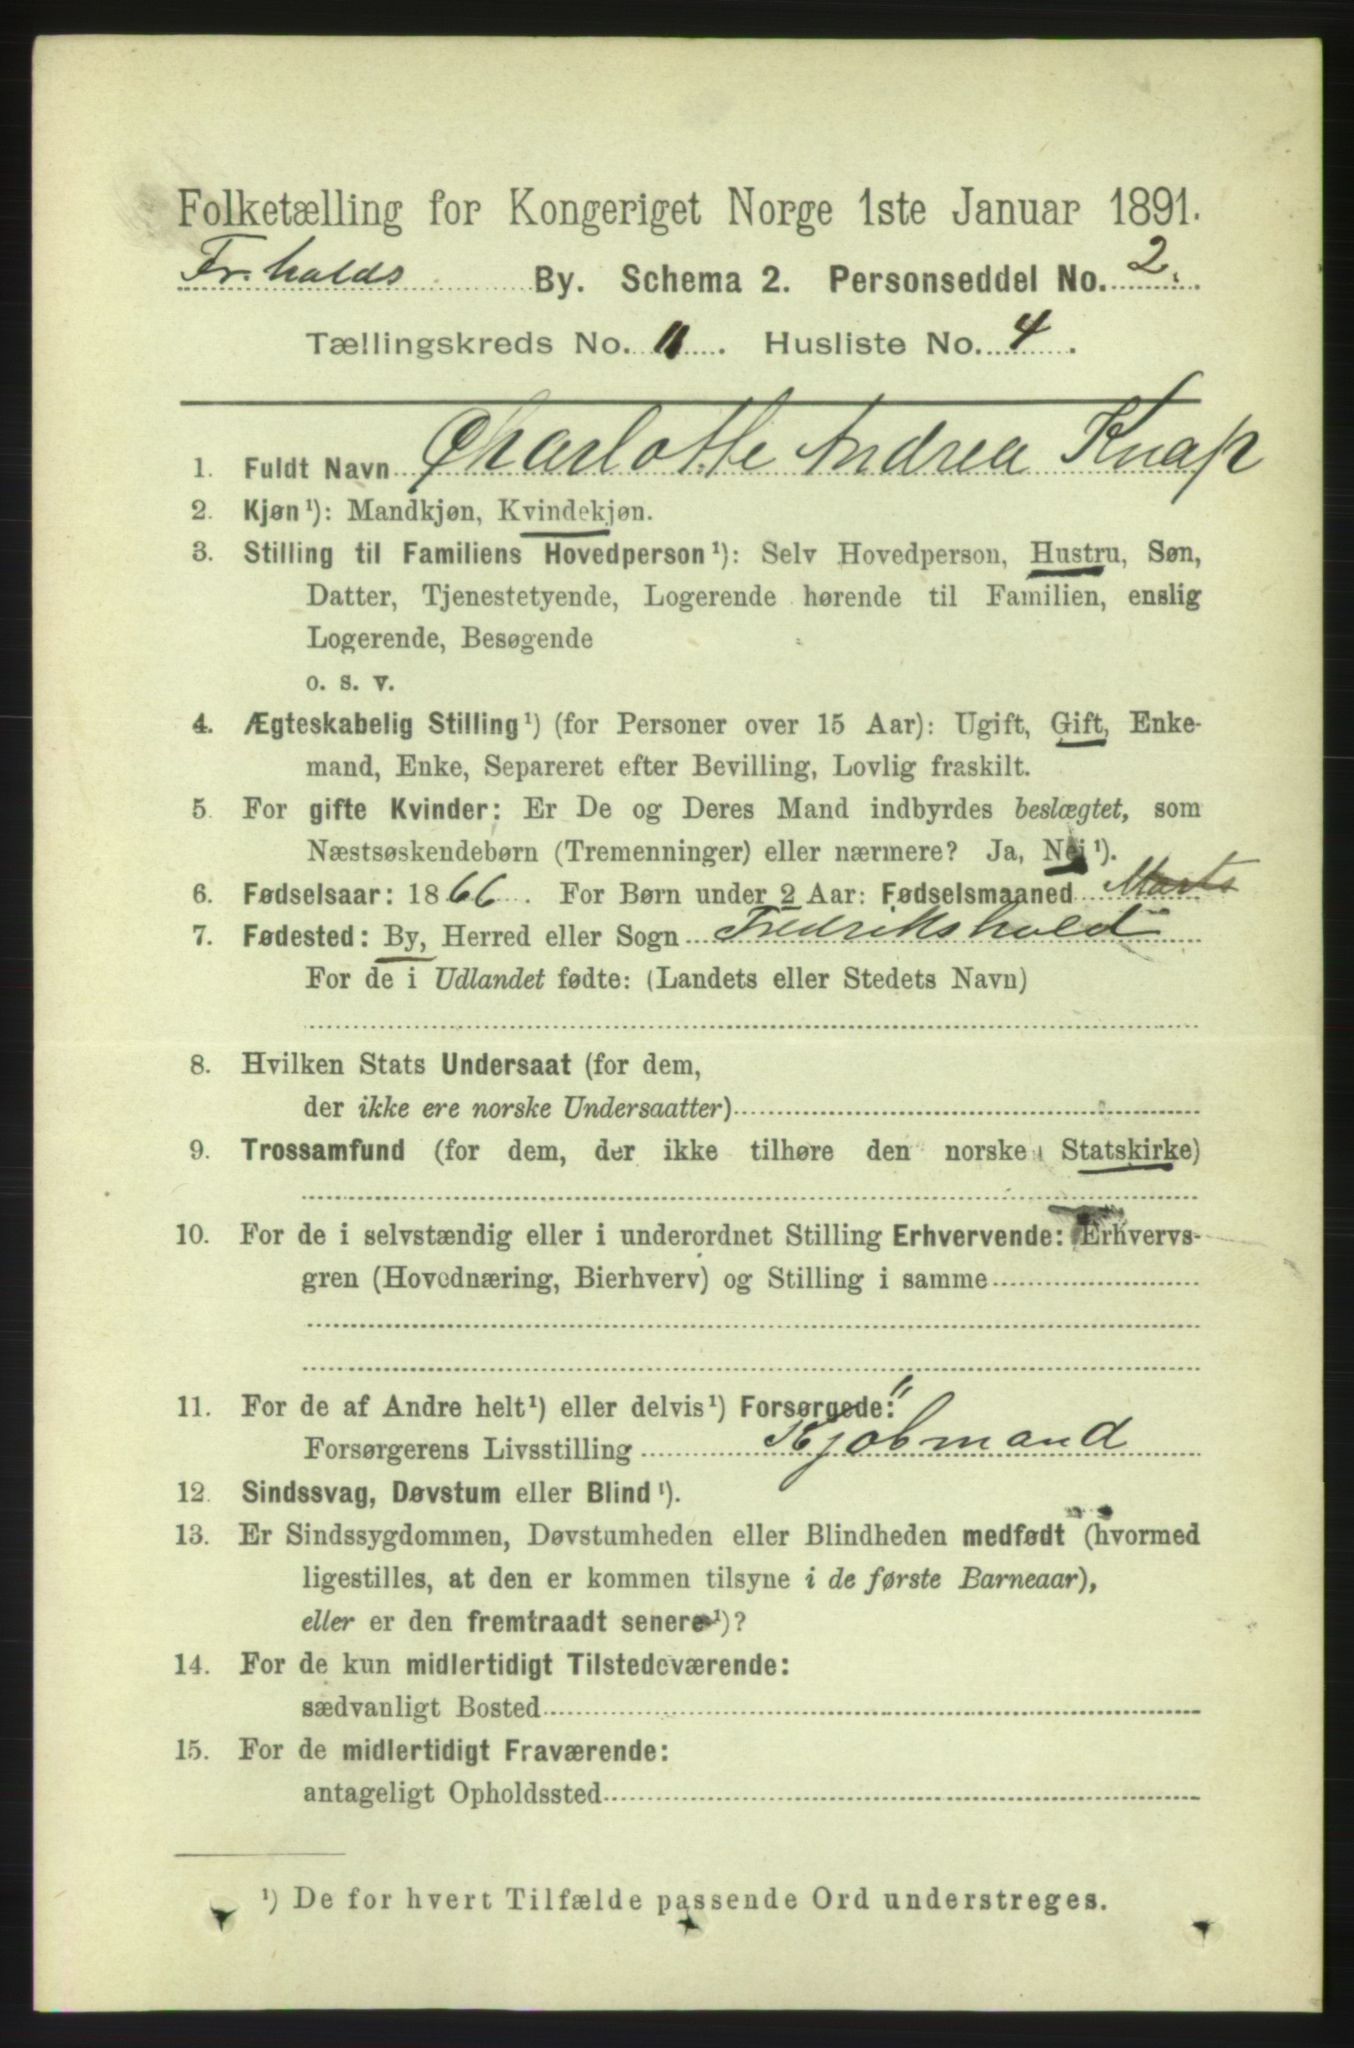 Folketælling for Kongeriget Norge 1ste Januar 1891.
Fr.halds By. Schema 2. Personseddel No. 2.
Tællingskreds No. 11. Husliste No. 4.
1. Fuldt Navn Charlotte Andrea Knap
2. Kjøn¹): Mandkjøn, Kvindekjøn.
3. Stilling til Familiens Hovedperson¹): Selv Hovedperson, Hustru, Søn,
Datter, Tjenestetyende, Logerende hørende til Familien, enslig
Logerende, Besøgende
o. s. v.
4. Ægteskabelig Stilling¹) (for Personer over 15 Aar): Ugift, Gift, Enke-
mand, Enke, Separeret efter Bevilling, Lovlig fraskilt.
5. For gifte Kvinder: Er De og Deres Mand indbyrdes beslægtet, som
Næstsøskendebørn (Tremenninger) eller nærmere? Ja, Nei¹).
6. Fødselsaar: 1866. For Børn under 2 Aar: Fødselsmaaned Marts
7. Fødested: By, Herred eller Sogn Fredrikshald
For de i Udlandet fødte: (Landets eller Stedets Navn)
8. Hvilken Stats Undersaat (for dem,
der ikke ere norske Undersaatter)
9. Trossamfund (for dem, der ikke tilhøre den norske Statskirke)
10. For de i selvstændig eller i underordnet Stilling Erhvervende: Erhvervs-
gren (Hovednæring, Bierhverv) og Stilling i samme
11. For de af Andre helt¹) eller delvis¹) Forsørgede:
Forsørgerens Livsstilling Kjøbmand
12. Sindssvag, Døvstum eller Blind¹).
13. Er Sindssygdommen, Døvstumheden eller Blindheden medfødt (hvormed
ligestilles, at den er kommen tilsyne i de første Barneaar),
eller er den fremtraadt senere¹)?
14. For de kun midlertidigt Tilstedeværende:
sædvanligt Bosted
15. For de midlertidigt Fraværende:
antageligt Opholdssted
¹) De for hvert Tilfælde passende Ord understreges.